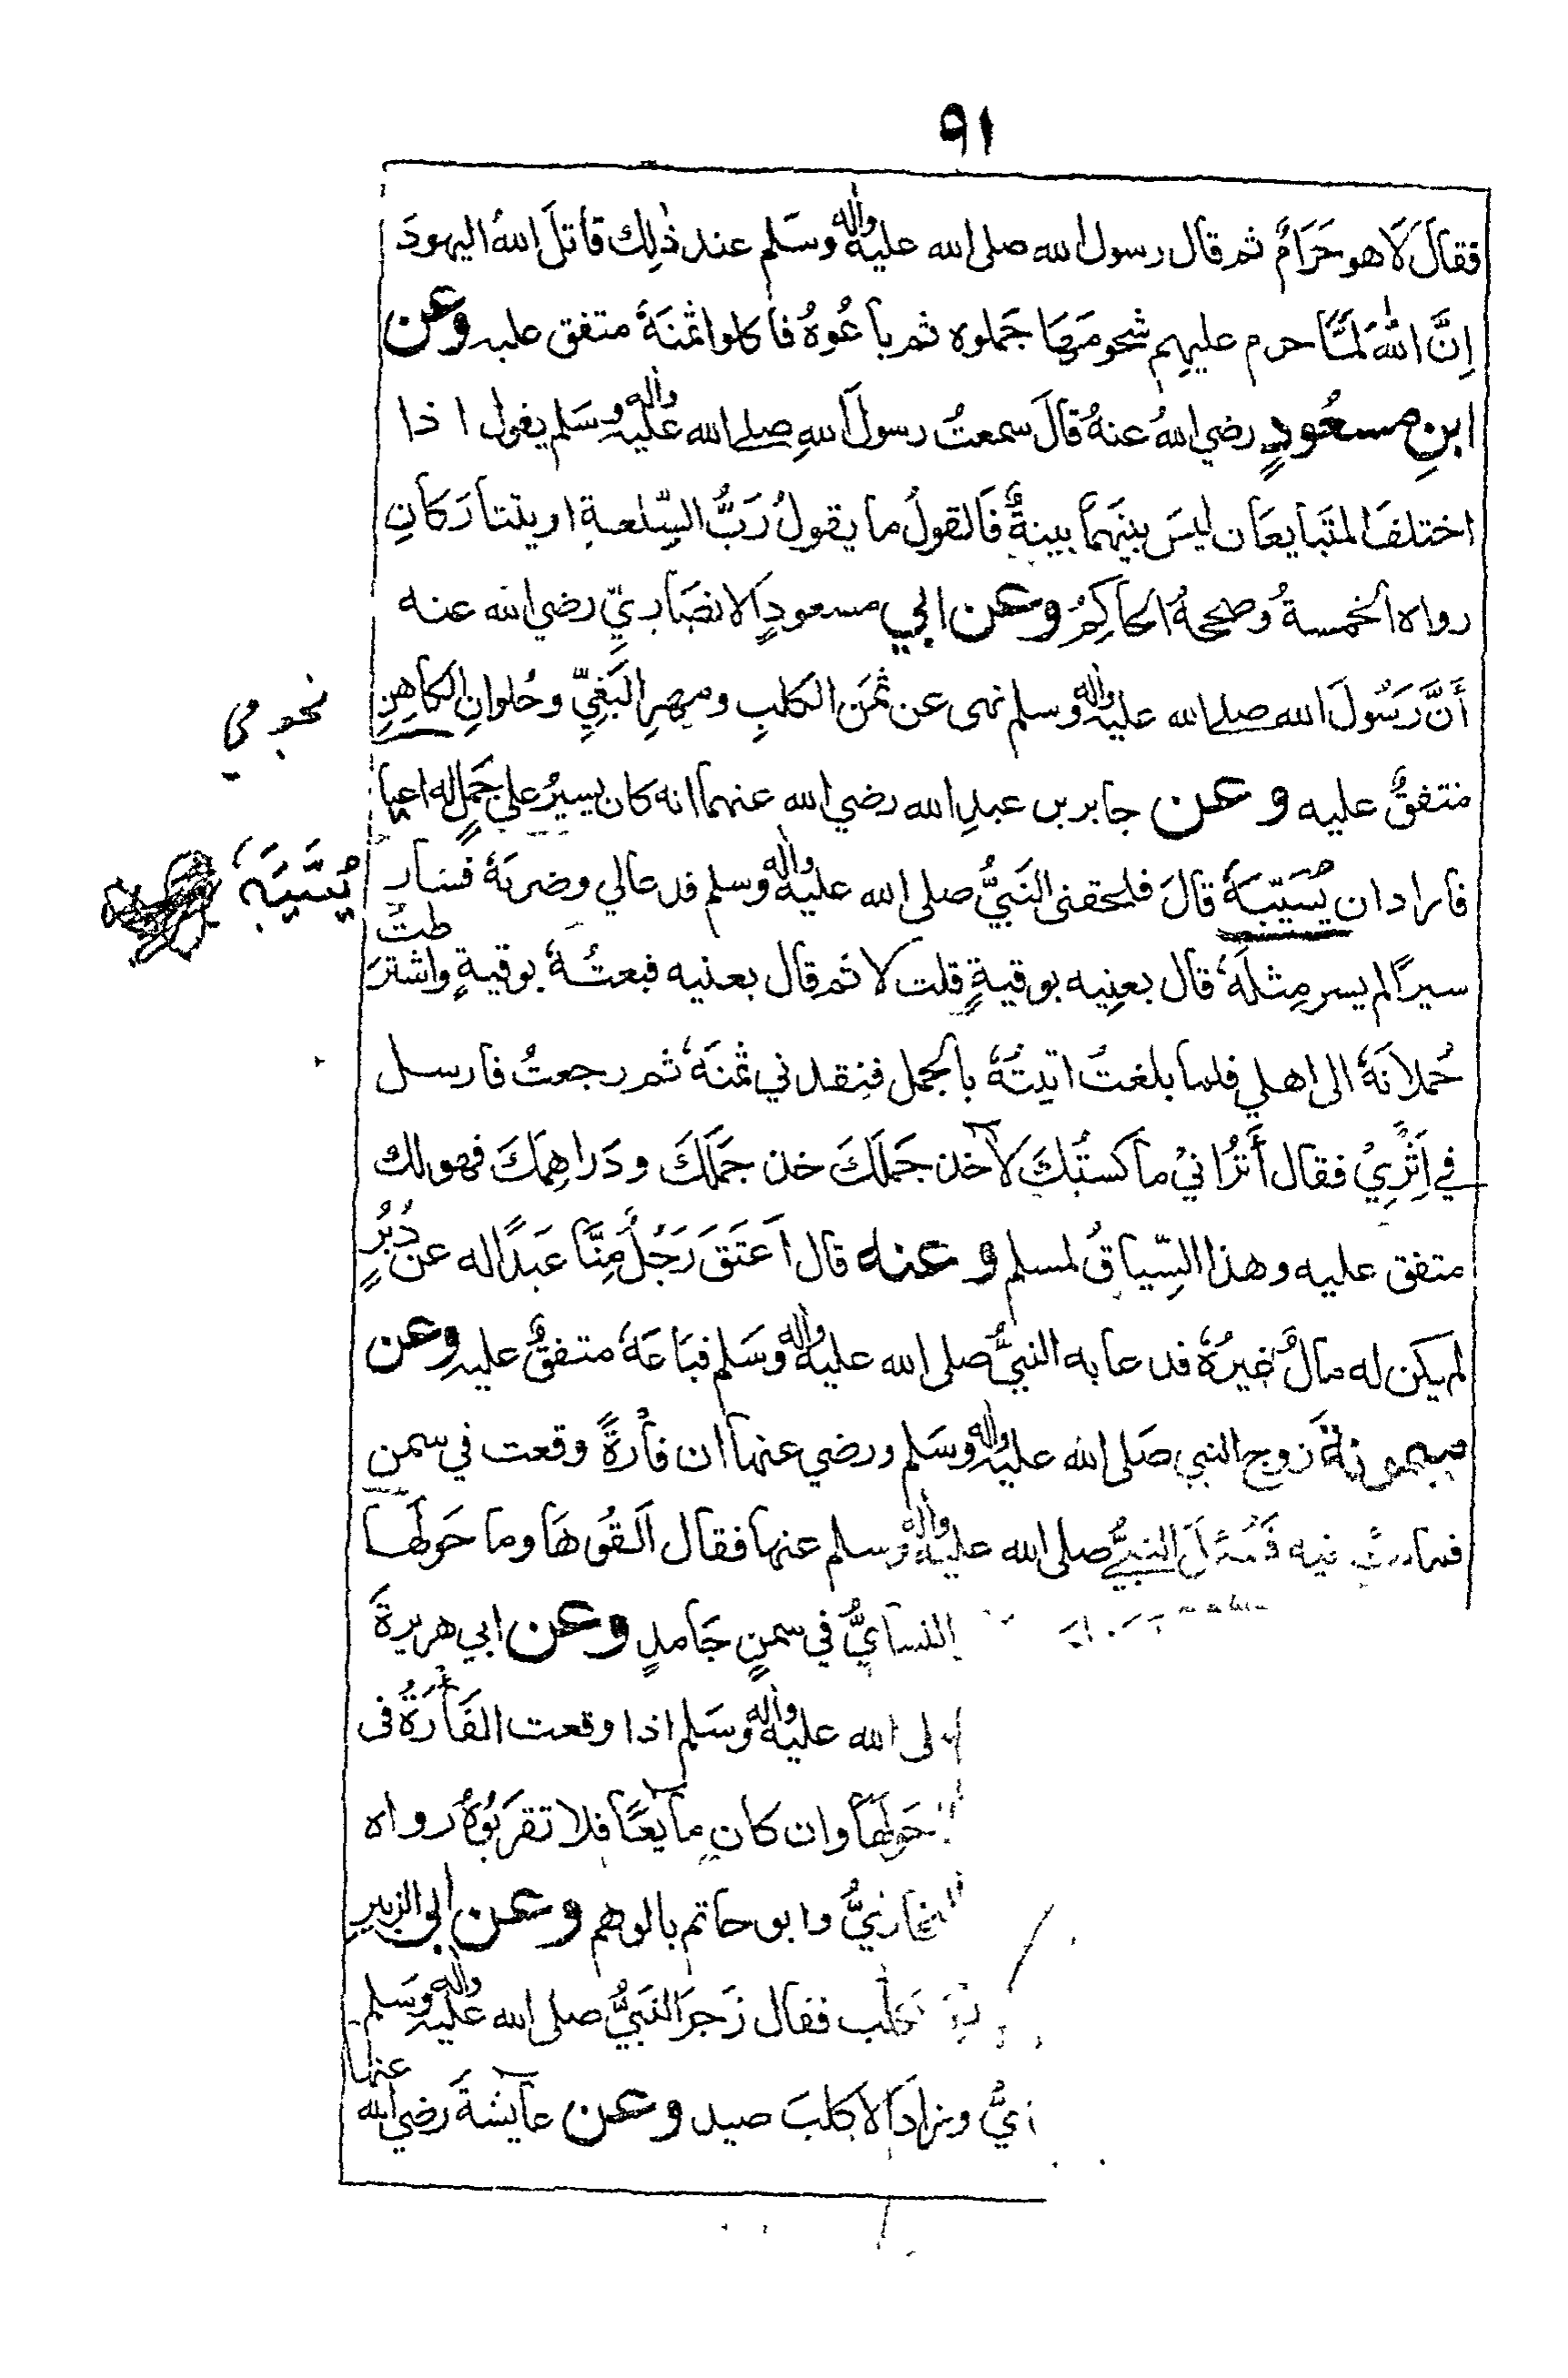 ٩١
فقالَ لَا هو حَرَامٌ ثم قال رسول الله صلى الله عليه واله وسَلم عند ذٰلِك قاتلَ اللهُ اليهودَ
اِنَّ اللهَ لمَّا حرم عليهِم شحومَهَا جَملوه ثم باعُوهُ فاكلوا ثمنَهٗ متفق عليه وعن
ابنِ مسعُودٍ رضي اللهُ عنهُ قالَ سمعتُ رسولَ اللهِ صلى الله عليه واله وسَلم يقول اذا
اختلفَ المتَبايعَان ليسَ بينَهمَا بينةٌ فَالقولُ ما يقولُ رَبُّ السِّلعةِ او يتتارَكانِ
رواه الخمسةُ وصححهُ الحاكِمُ وعن ابي مسعودٍ الانصَاريِّ رضي الله عنه
أَنَّ رَسُولَ الله صلى الله عليه واله وسلم نهى عن ثمَن الكلبِ ومهرِ البَغِيِّ وحُلوانِ الكاهِنِ
نجومي
متفقٌ عليه وعن جابر بن عبدِ الله رضي الله عنهما انه كان يسيرُ على جَملٍ له اعيا
فاراد ان يُسَيّبَهٗ قالَ فلحقنى النَبيُّ صلى الله عليه واله وسلم فدعالي وضربَهٗ فسار
يُسَّيَبَهٗ
طتُ
سيرًا لم يسر مِثلَهٗ قال بعنِيه بوقيةٍ قلت لا ثم قال بعنيه فبعتُهٗ بوقيةٍ واشترَ
حُملانَهٗ الى اهلي فلما بلغتُ اتيتُهٗ بالجمل فنقدني ثمنَهٗ ثم رجعتُ فارسل
في اَثَرِيْ فقال أَتُرَانيْ ماكستُكَ لآخذ جَملَكَ خذ جمَلَكَ ودَراهِمَكَ فهو لك
متفق عليه وهذا السِّياقُ لمسلم وعنه قال اَعتَقَ رَجُلٌ مِنَّا عَبدًا له عن دُبُرٍ
لم يكن له مالٌ غيرُهٗ فدعا به النبيُّ صلى الله عليه واله وسَلم فبَاعَهٗ متفقٌ عليه وعن
ميمونةَ زوج النبي صَلى الله عليه واله وسَلم ورضي عنها ان فأرةً وقعت في سمن
فماتت فيه فَسُئلَ النبيُّ صلى الله عليه واله وسلم عنها فقال اَلقُوهَا وما حَولَهَا
النسائيُّ في سمنٍ جَامدٍ وعن ابي هريرةَ
لى الله عليه واله وسَلم اذا وقعت الفَأرَةُ فى
حَولَها وان كان مآيعًا فلا تقرَبُوهُ رواه
البخاريُّ وابو حاتم بالوهم وعن ابي الزبير
كلب فقال زَجرَ النَبيُّ صلى الله عليه واله وسَلم
عنها
ئيُّ وزادَ الا كلبَ صيد وعن عآيشةَ رضي الله